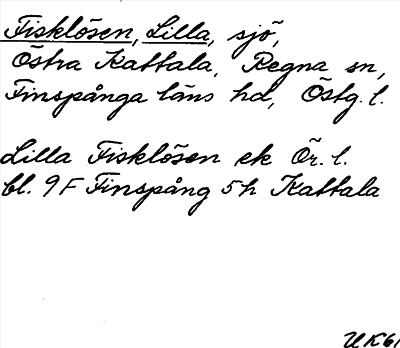 Fisklösen, Lilla, sjö,
Östra Kattala, Regna sn,
Finspånga läns hd, Östg. l.
Lilla Fisklösen ek Ör. l.
bl. 9 F Finspång 5 h Kattala
U K61